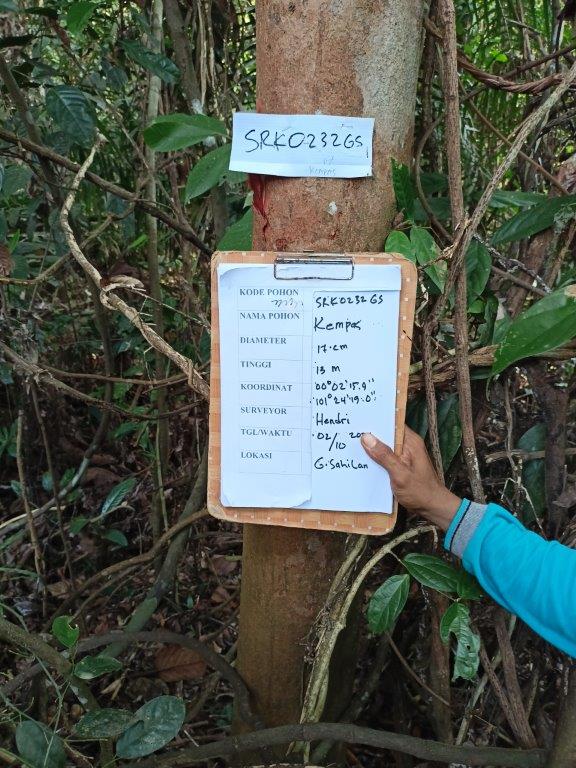 SRK0232GS
Kempas
KODE POHON SRK0232GS
NAMA POHON Kempas
DIAMETER 17 cm
TINGGI 13 m
KOORDINAT 00°02'15.9"
101°24'49.0"
SURVEYOR Hendri
TGL/WAKTU 02/10
LOKASI G. Sahilan